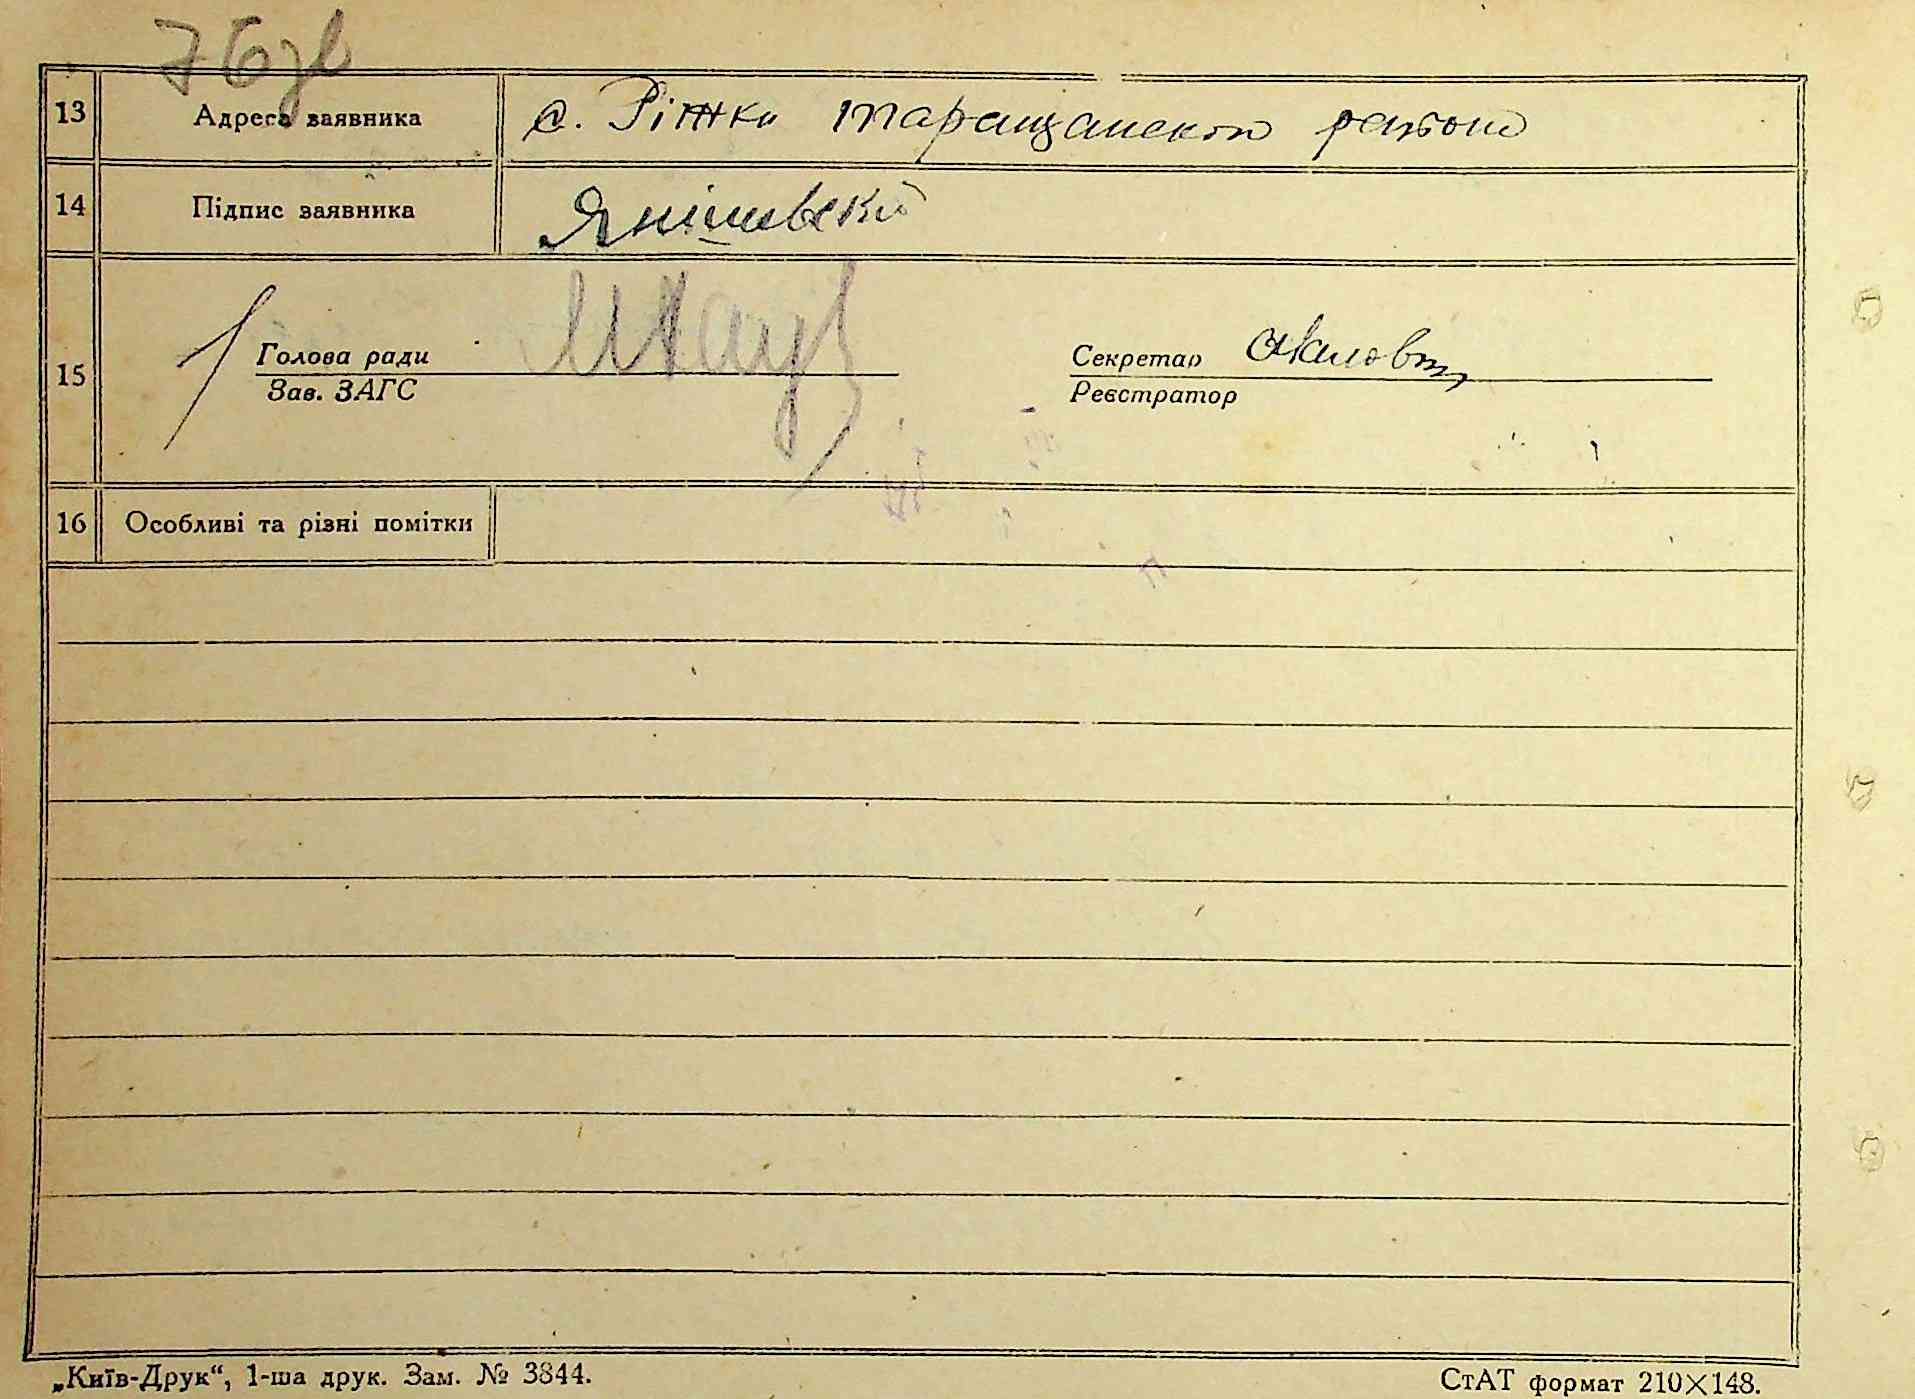 76зв
13 Адреса заявника с. Ріжки Таращанского району
14 Підпис заявника Янішевский
15 Голова ради Секретар
Зав. ЗАГС Реєстратор
16 Особливі та різні помітки
„Київ-Друк“, 1-ша друк. Зам. № 3844. СтАТ формат 210×148.